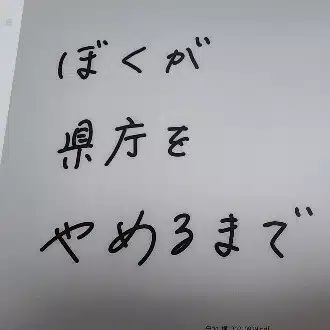 ぼくが
県庁を
やめるまで